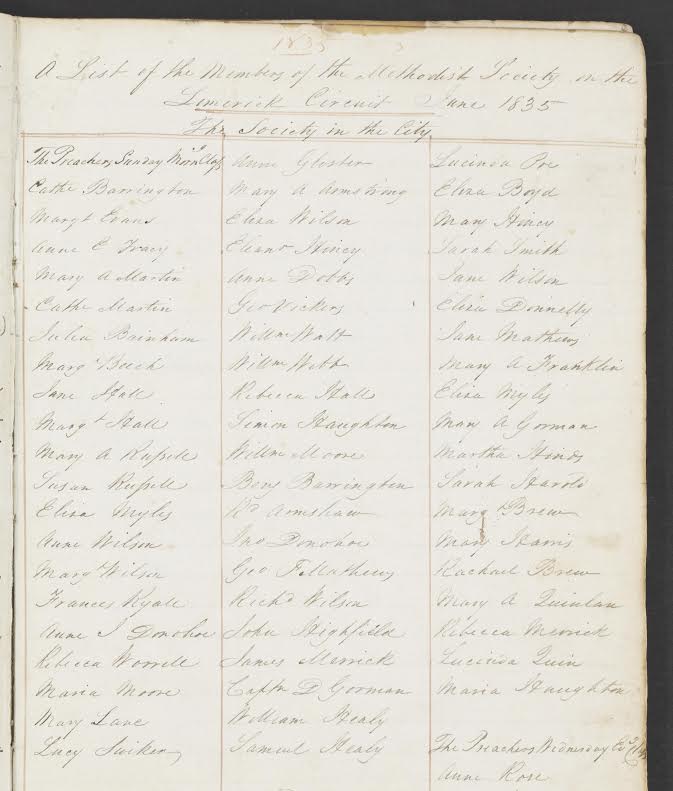 1835
3
A List of the Members of the Methodist Society in the
Limerick Circuit June 1835
The Society in the City
The Preachers Sunday Morn.g Class
Cathe Barrington
Margt Evans
Anne E Tracy
Mary A Martin
Cathe Martin
Julia Bainham
Margt Beech
Jane Hall
Margt Hall
Mary A Russell
Susan Russell
Eliza Myles
Anne Wilson
Margt Wilson
Frances Ryall
Anne J Donohoe
Rebecca Worrell
Maria Moore
Mary Lane
Lucy
Anne Gloster
Mary A Armstrong
Eliza Wilson
Eleanr Hiney
Anne Dobbs
Geo Vickers
Willm Watt
Willm Webb
Rebecca Hall
Simon Haughton
Willm Moore
Benj Barrington
Rd Armshaw
Jno Donohoe
Geo F Mathews
Richd Wilson
John Highfield
James Merrick
Captn D Gorman
William Healy
Samuel Healy
Lucinda
Eliza Boyd
Mary Hiney
Sarah Smith
Jane Wilson
Eliza Donnelly
Jane Mathews
Mary A Franklin
Eliza Myles
Mary A Gorman
Martha Hinds
Sarah Harold
Margt Brew
Mary Harris
Rachael Brew
Mary A Quinlan
Rebecca Merrick
Lucinda Quin
Maria Haughton
The Preachers Wednesday Ev.g Class
Anne Rose